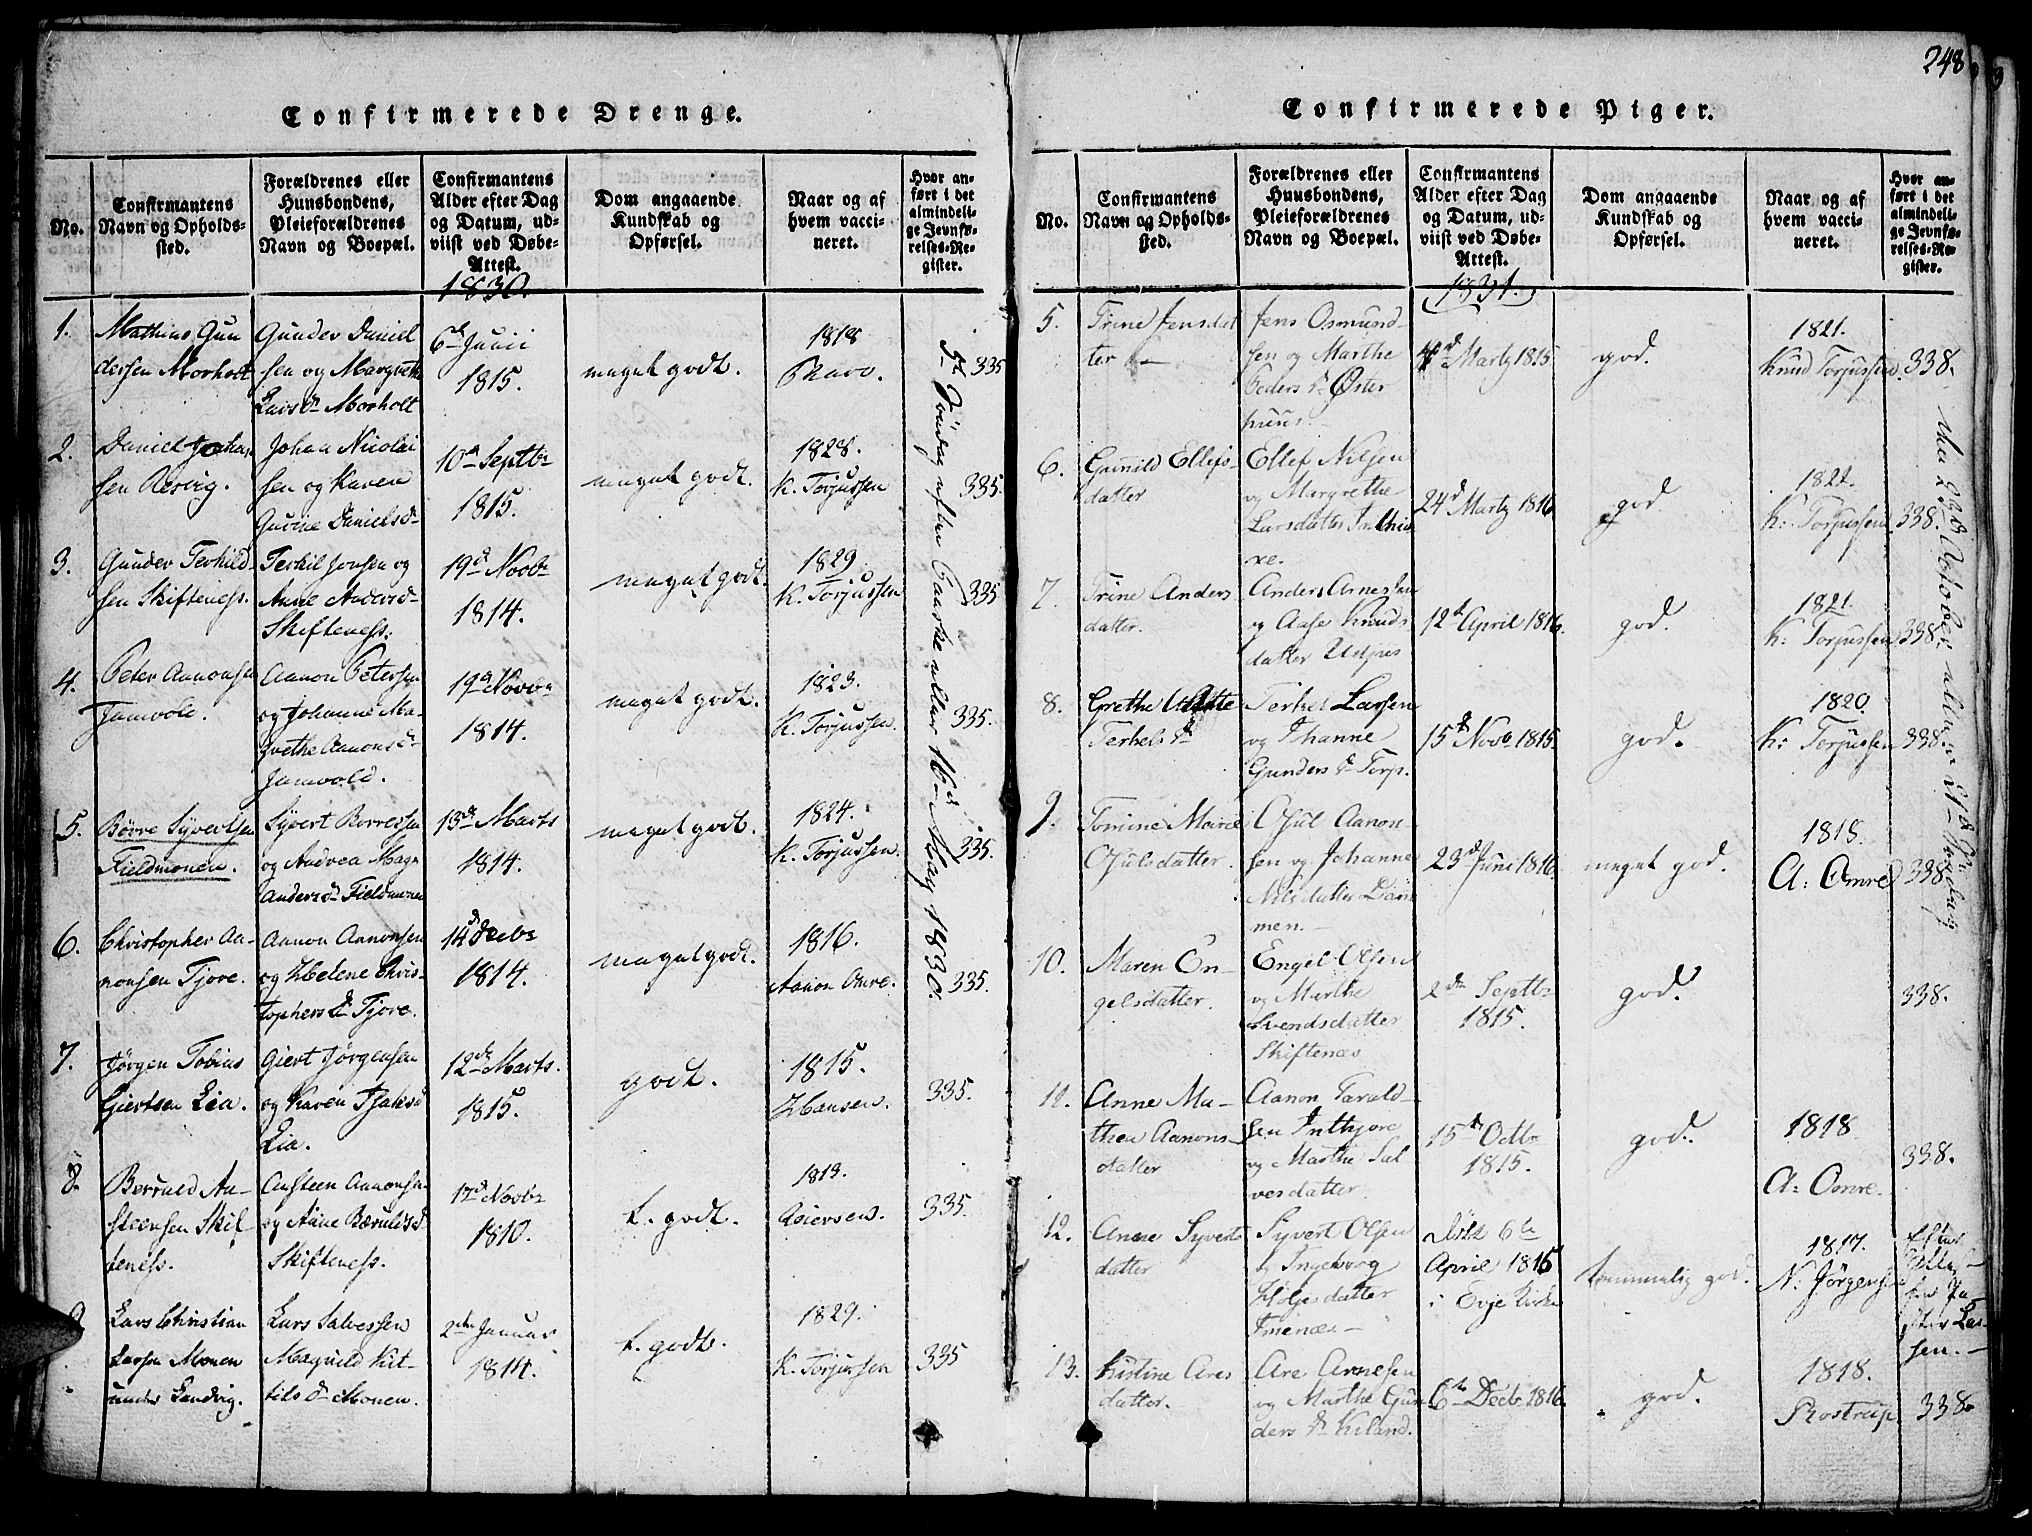 248
Confirmerede Drenge.
No.
Confirmantens
Navn og Opholds-
sted.
Forældrenes eller
Huusbondens,
Pleieforældrenes
Navn og Boepæl.
Confirmantens
Alder efter Dag
og Datum, ud-
viist ved Døbe-
Attest.
Dom angaaende
Kundskab og
Opførsel.
Naar og af
hvem vacci-
neret.
Hvor an-
ført i det
almindeli-
ge Jevnfø-
relses-Re-
gister.
1830.
1.
Mathias Gun
dersen Morholt
Gunder Daniel
sen og Margrethe
Lars d. Morholt
6te Junii
1815.
meget godt.
1818
335
2.
Daniel Johan
sen Resvig.
Johan Nicolai
sen og Karen
Gurine Daniels d.
10de Septbr
1815.
meget godt.
1828.
K. Torjussen
335.
3.
Gunder Terkild
sen Skifteness.
Terkil Jensen og
Anne Anders d.
Skifteness.
19de Novbr
1814.
meget godt.
1829
K. Torjussen
335
4.
Peter Aanonsen
Jamvold.
Aanon Petersen
og Johanne Ma-
grethe Aanons d.
Jamvold.
19de Novbr
1814.
meget godt.
1823.
K. Torjussen.
335.
5.
Børre Syvertsen
Fieldmonen.
Syvert Børressen
og Andrea Magr.
Anders d. Fieldmonen
13de Marts
1814.
meget godt.
1824.
K. Torjussen.
335.
6.
Christopher Aa-
nonsen Tjore.
Aanon Aanonsen
og Helene Chris-
tophers d. Tjore.
14de Decbr
1814.
meget godt.
1816.
Aanon Omre.
335.
7.
Jørgen Tobias
Giertsen Lia.
Giert Jørgensen
og Karen Isaks d
Lia.
12de Marts.
1815.
godt.
1815.
Hansen.
335.
8.
Berruld Au-
steensen Skif
teness.
Austeen Aanonsen
og Anne Bærulds d
Skifteness.
17de Novbr
1810.
t. godt.
1813.
Reiersen.
335.
9
Lars Christian
Larsen Monen
under Landvig.
Lars Salvessen
Magnild Kit-
tils d. Monen.
2den Januar
1814.
t. godt.
1829.
K. Torjussen
335
5te Søndag efter Paaske eller 16de May 1830.
Confirmerede Piger.
No.
Confirmantens
Navn og Opholds-
sted.
Forældrenes eller
Huusbondens,
Pleieforældrenes
Navn og Boepæl.
Confirmantens
Alder efter Dag
og Datum, ud-
viist ved Døbe-
Attest.
Dom angaaende
Kundskab og
Opførsel.
Naar og af
hvem vacci-
neret.
Hvor an-
ført i det
almindeli-
ge Jevnfø-
relses-Re-
gister.
1831.
5.
Trine Jensdat
ter
Jens Osmund-
sen og Marthe
Peders d. Øster
huus.
4de Marty 1815
god.
1821.
Knud Torjussen.
338.
6.
Gunild Ellefs-
datter
Ellef Nilsen
og Margrethe
Larsdatter Inthio
re.
24d Marty 1816
god.
1822.
K: Torjussen
338.
7.
Trine Anders
datter.
Anders Arnesen
og Aase Knuds
datter
12te April 1816.
god.
1821.
K: Torjussen
338.
8.
Grethe
Terkels d.
Terkel Larsen
og Johanne
Gunders d. Torp.
15de Novb 1815.
god.
1820.
K: Torjussen
338.
9.
Tomine Marie
Osulsdatter.
Osul Aanon-
sen og Johanne
Nilsdatter
men.
23de Juni 1816.
meget god.
1815.
A: Omre
338
10.
Maren En-
gelsdatter.
Engel Olsen
og Marthe
Svendsdatter
Skiftenæs
2den Septbr
1815.
god.
338.
11.
Anne Ma-
thea Aanons-
datter
Aanon Tarald-
sen Inthjore
og Marthe Sal
vesdatter.
15de Octbr
1815.
god.
1818.
A: Omre.
338.
12.
Anne Syverts
datter
Syvert Olsen
og Ingeborg
Imenæs
døbt 6te
April 1816
i Evje Kirke
temmelig god.
1817.
N: Jørgensen
Efter
Attest
fra Pa-
stor Las-
sen.
13.
Kistine Ares
datter.
Are Arnesen
og Marthe Gun
ders d. Kiland.
6te Decb. 1816.
god.
1818.
Rostrup
338.